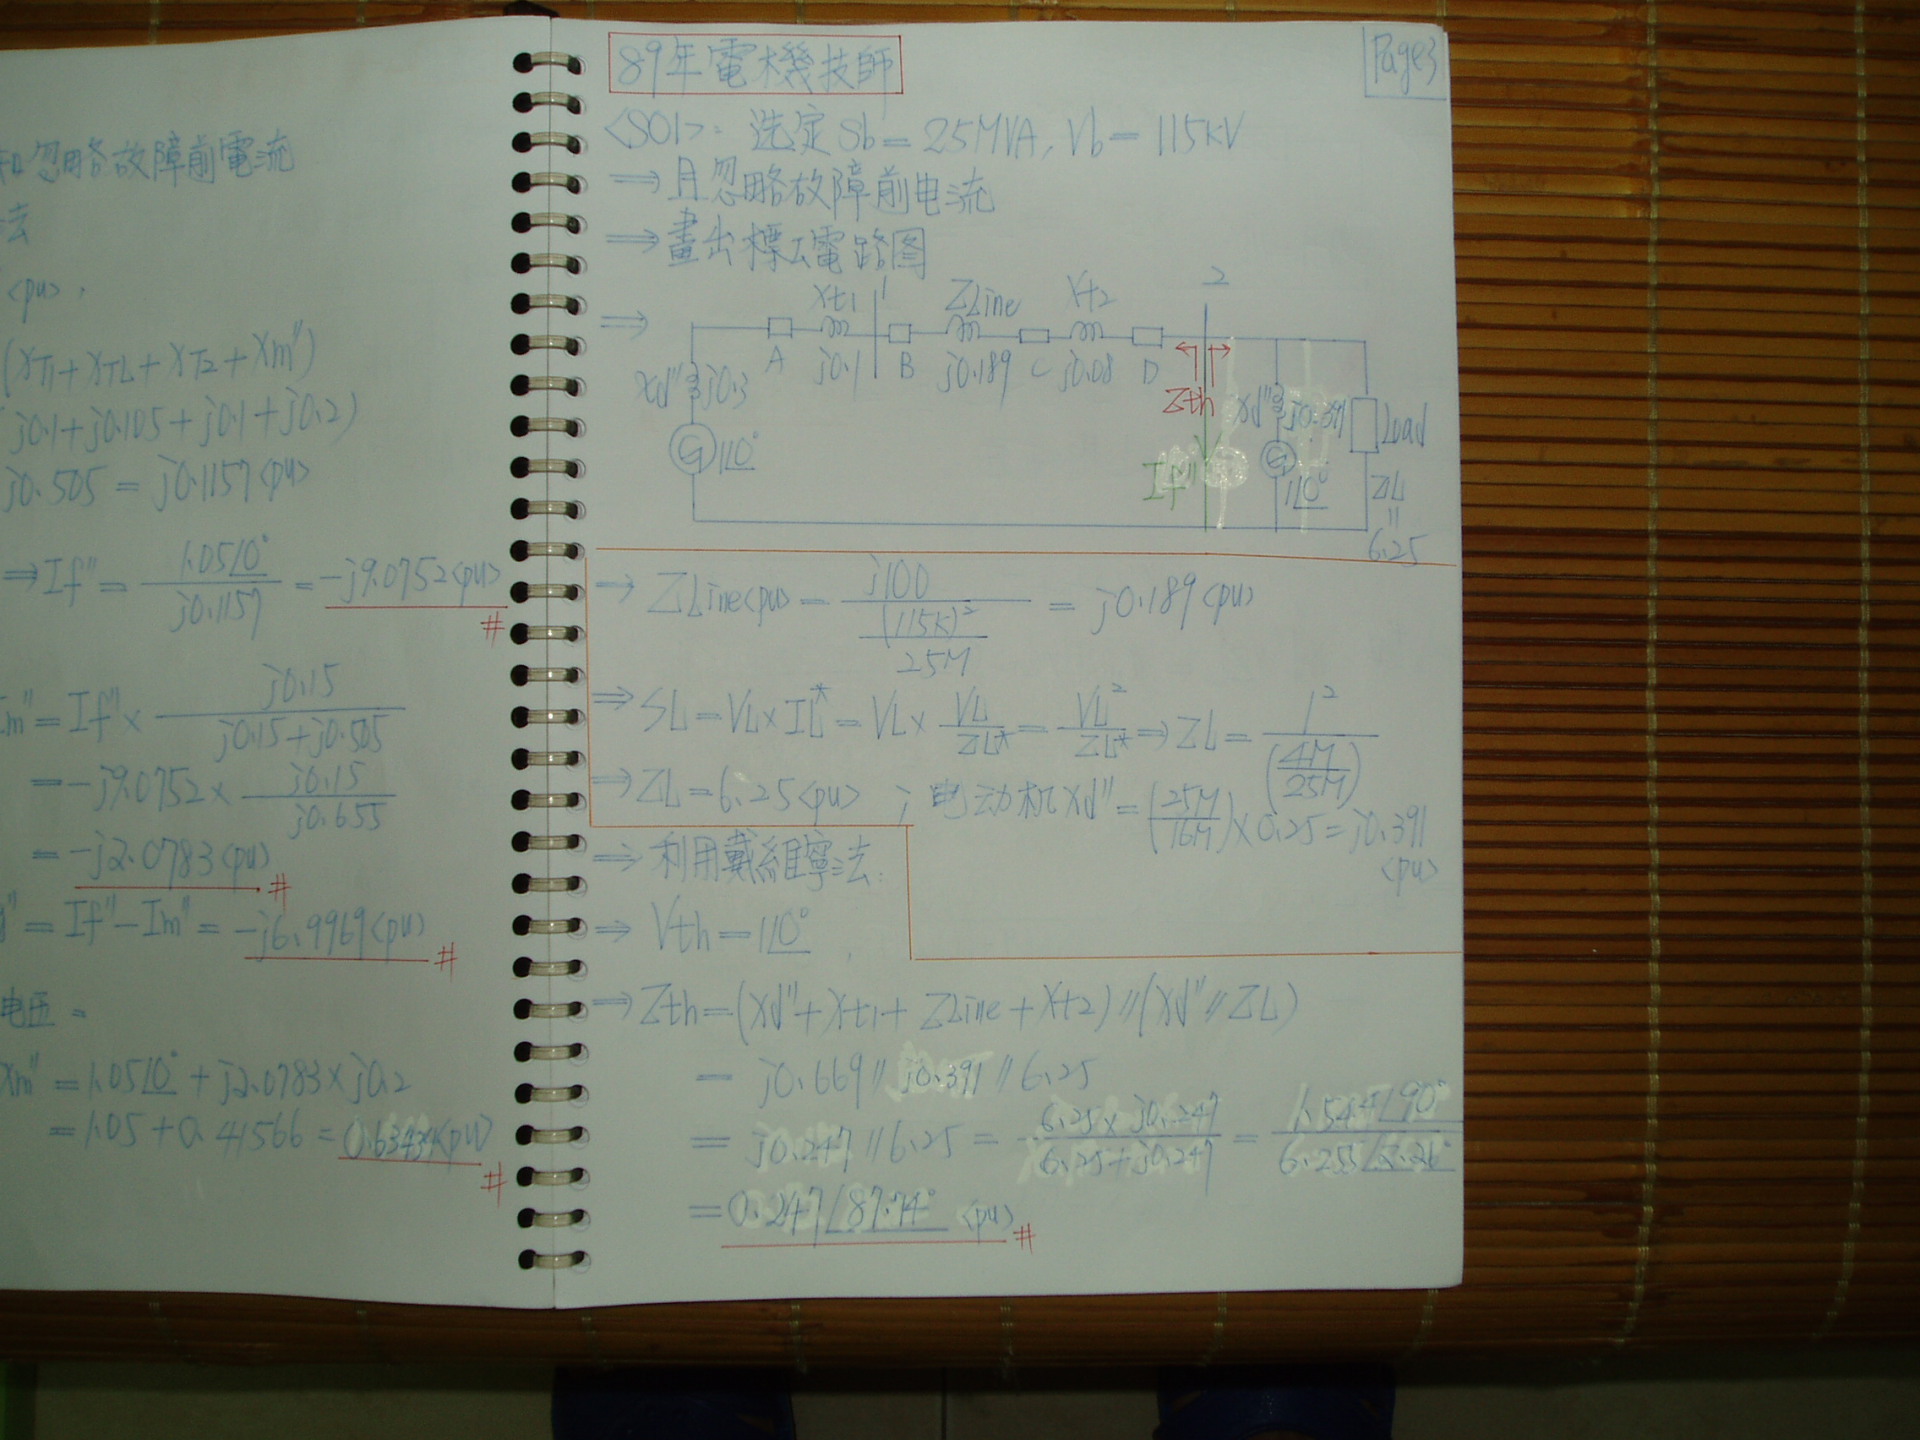 和忽略故障前電流
法
<pu>,
(XT1+XTL+XT2+Xm")
j0.1+j0.105+j0.1+j0.2)
j0.505 = j0.1157<pu>
⇒ If" = 1.05∠0° / j0.1157 = -j9.0752<pu> #
Im" = If" × j0.15 / (j0.15+j0.505)
= -j9.0752 × j0.15 / j0.655
= -j2.0783<pu> #
" = If" - Im" = -j6.9969<pu> #
电压 =
Xm" = 1.05∠0° + j2.0783×j0.2
= 1.05+0.41566 = 0.63434<pu> #
89年電機技師
Page3
<SOl>: 选定Sb = 25MVA, Vb = 115KV
⇒ 且忽略故障前电流
⇒ 畫出標么電路图
⇒
Xt1 1 ZLine Xt2 2
A j0.1 B j0.189 C j0.08 D
Xd" j0.3
Zth Xd" j0.391 Load
G 1∠0°
If" G 1∠0° ZL
=
6.25
⇒ ZLine<pu> = j100 / ((115K)² / 25M) = j0.189<pu>
⇒ SL = VL×IL* = VL× VL/ZL* = VL²/ZL* ⇒ ZL = 1² / (4M/25M)
⇒ ZL = 6.25<pu> ; 电动机Xd" = (25M/16M)×0.25 = j0.391
<pu>
⇒ 利用戴維寧法:
⇒ Vth = 1∠0°
⇒ Zth = (Xd"+Xt1+ZLine+Xt2)//(Xd"//ZL)
= j0.669//j0.391//6.25
= j0.247//6.25 = 6.25×j0.247 / 6.25+j0.247 = 1.544∠90° / 6.255∠2.26°
= 0.247∠87.74° <pu> #